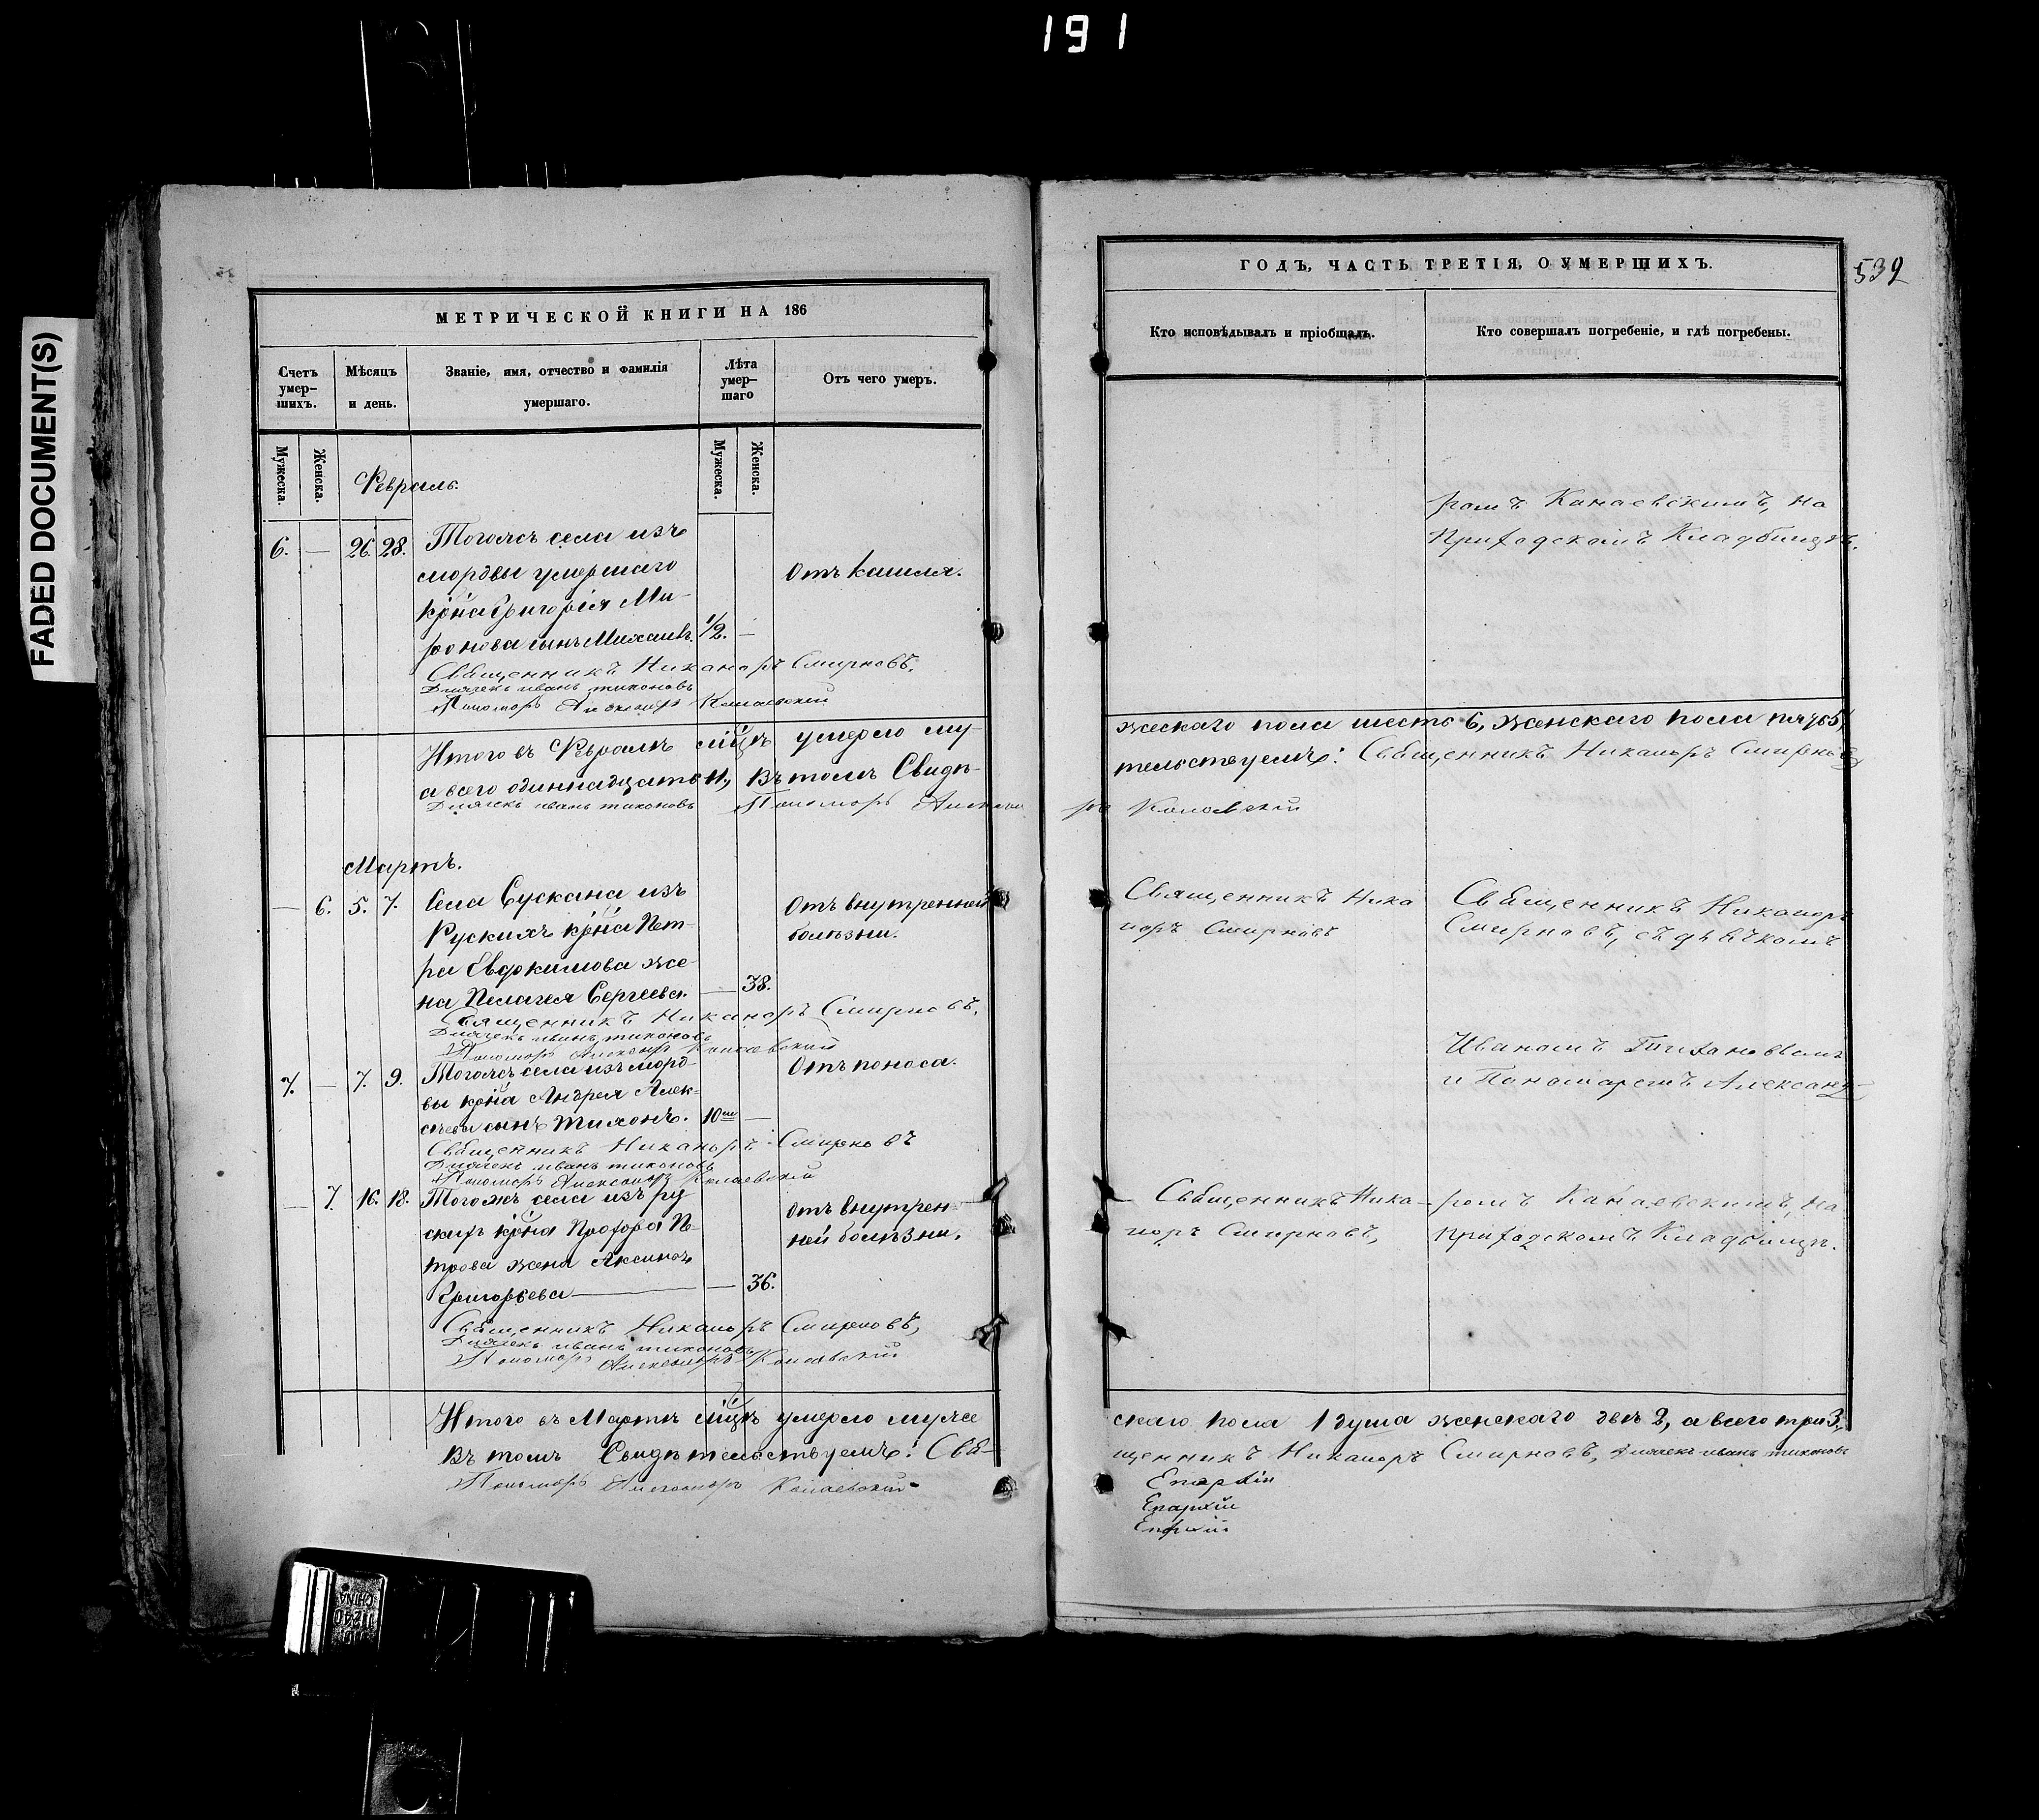 191
FADED DOCUMENT(S)
МЕТРИЧЕСКОЙ КНИГИ НА 186
Счетъ умер–шихъ.
Мѣсяцъ и день.
Званіе, имя, отчество и фамилія умершаго.
Лѣта умер–шаго
Отъ чего умеръ.
Мужеска.
Женска.
Мужеска.
Женска.
Февраль.
6. — 26. 28. Тогожъ села изъ
мордвы умершаго
Отъ кашля.
крѣна Григорія Ми-
ронова сынъ Михаилъ. 1/2. —
Священникъ Никаноръ Смирновъ.
Дьячекъ иванъ тихоновъ
Пономарь Александръ Канаевскій
Итого въ Февралѣ мцѣ умерло му-
а всего одиннадцать 11, Въ томъ Свидѣ-
Дьячекъ иванъ тихоновъ Пономарь Александ
Мартъ.
— 6. 5. 7. Села Сускана изъ
Отъ внутренней
Рускихъ крѣна Пет-
болѣзни.
ра Евдокимова же-
на Пелагея Сергеева. — 38.
Священникъ Никаноръ Смирновъ,
Дьячекъ иванъ тихоновъ
Пономарь Александръ Канаевский
7. — 7. 9. Тогожъ села изъ морд-
Отъ поноса.
вы крѣна Андрея Алек-
сѣева сынъ Тихонъ. 10 —
Священникъ Никаноръ Смирновъ
Дьячекъ иванъ тихоновъ
Пономарь Александръ Канаевскій
— 7. 16. 18. Тогожъ села изъ ру
отъ внутрен-
скихъ крѣна Прохора Пе
ней болѣзни.
трова жена Аксинья
Григорьева — — 36.
Священникъ Никаноръ Смирновъ,
Дьячекъ иванъ тихоновъ
Пономарь Александръ Канаевский
Итого въ Мартѣ мцѣ умерло мужее
Въ томъ Свидѣтельствуемъ: Свя-
Пономарь Александръ Канаевский
ГОДЪ, ЧАСТЬ ТРЕТІЯ, О УМЕРШИХЪ.
539
Кто исповѣдывалъ и пріобщалъ.
Кто совершалъ погребеніе, и гдѣ погребены.
ромъ Канаевскимъ, на
Приходскомъ Кладбищѣ.
жескаго пола шесть 6, женскаго пола пять 5,
тельствуемъ: Священникъ Никаноръ Смирновъ
ръ Канаевский
Священникъ Ника
норъ Смирновъ
Священникъ Никаноръ
Смирновъ, съ дьячкомъ
Иваномъ Тихоновымъ
и Пономаремъ Александ-
Священникъ Ника-
норъ Смирновъ,
ромъ Канаевскимъ, на
Приходскомъ Кладбищѣ.
скаго пола 1 душа женскаго двѣ 2, а всего три 3,
щенникъ Никаноръ Смирновъ, Дьячекъ иванъ тихоновъ
Епархіи
Епархіи
Епрхіи